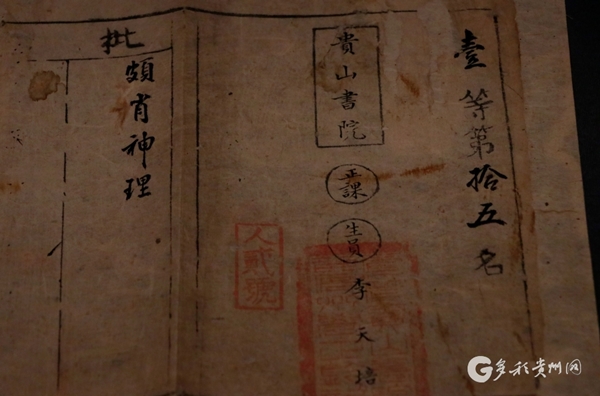 壹等第拾五名
貴山書院
正課
生員
李天培
人貳號
批
頗肖神理
多彩贵州网